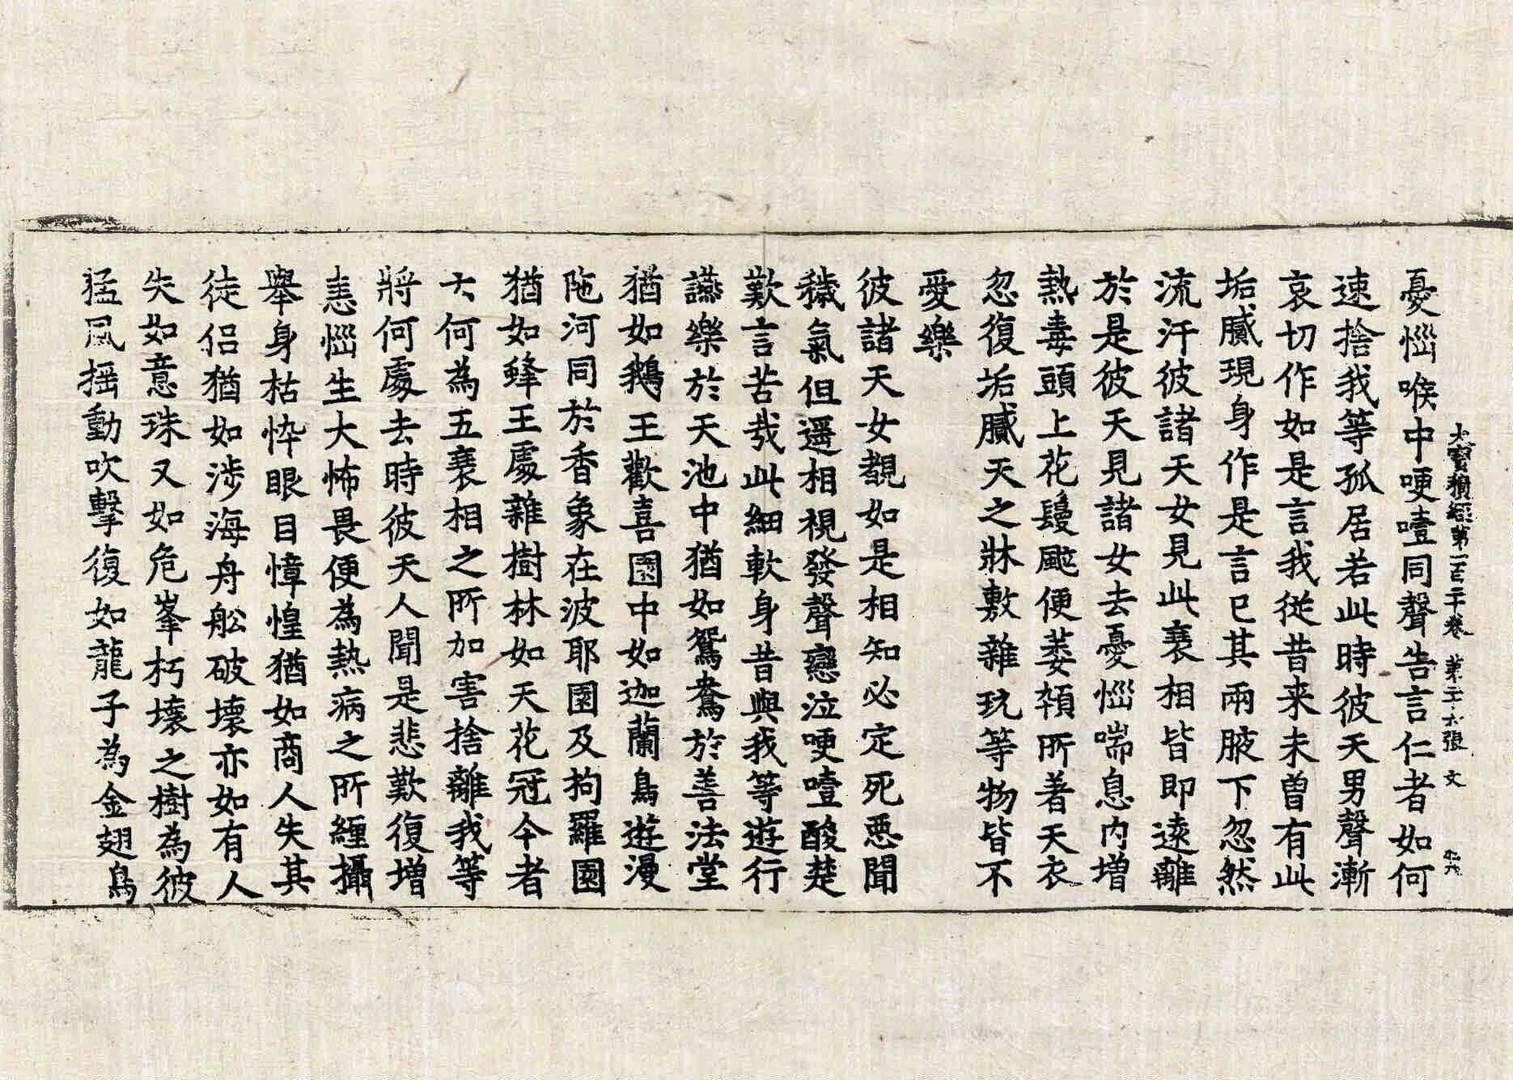 大寶積經第一百二十卷 第二十六張 文
憂惱喉中哽噎同聲告言仁者如何
速捨我等孤居若此時彼天男聲漸
哀切作如是言我従昔来未曽有此
垢膩現身作是言已其兩腋下忽然
流汗彼諸天女見此衰相皆即遠離
於是彼天見諸女去憂惱喘息内增
熱毒頭上花鬘颭便萎顇所著天衣
忽復垢膩天之牀敷雜玩等物皆不
愛樂
彼諸天女覩如是相知必定死惡聞
穢氣但遥相視發聲戀泣哽噎酸楚
歎言苦哉此細軟身昔與我等遊行
讌樂於天池中猶如鴛鴦於善法堂
猶如鵝王歡喜園中如迦蘭鳥遊漫
陁河同於香象在波耶園及拘羅園
猶如蜂王處雜樹林如天花冠今者
云何為五衰相之所加害捨離我等
將何處去時彼天人聞是悲歎復增
恚惱生大怖畏便為熱病之所纏攝
舉身枯悴眼目慞惶猶如商人失其
徒侣猶如涉海舟舩破壞亦如有人
失如意珠又如危峯朽壞之樹為彼
猛風揺動吹擊復如龍子為金翅鳥